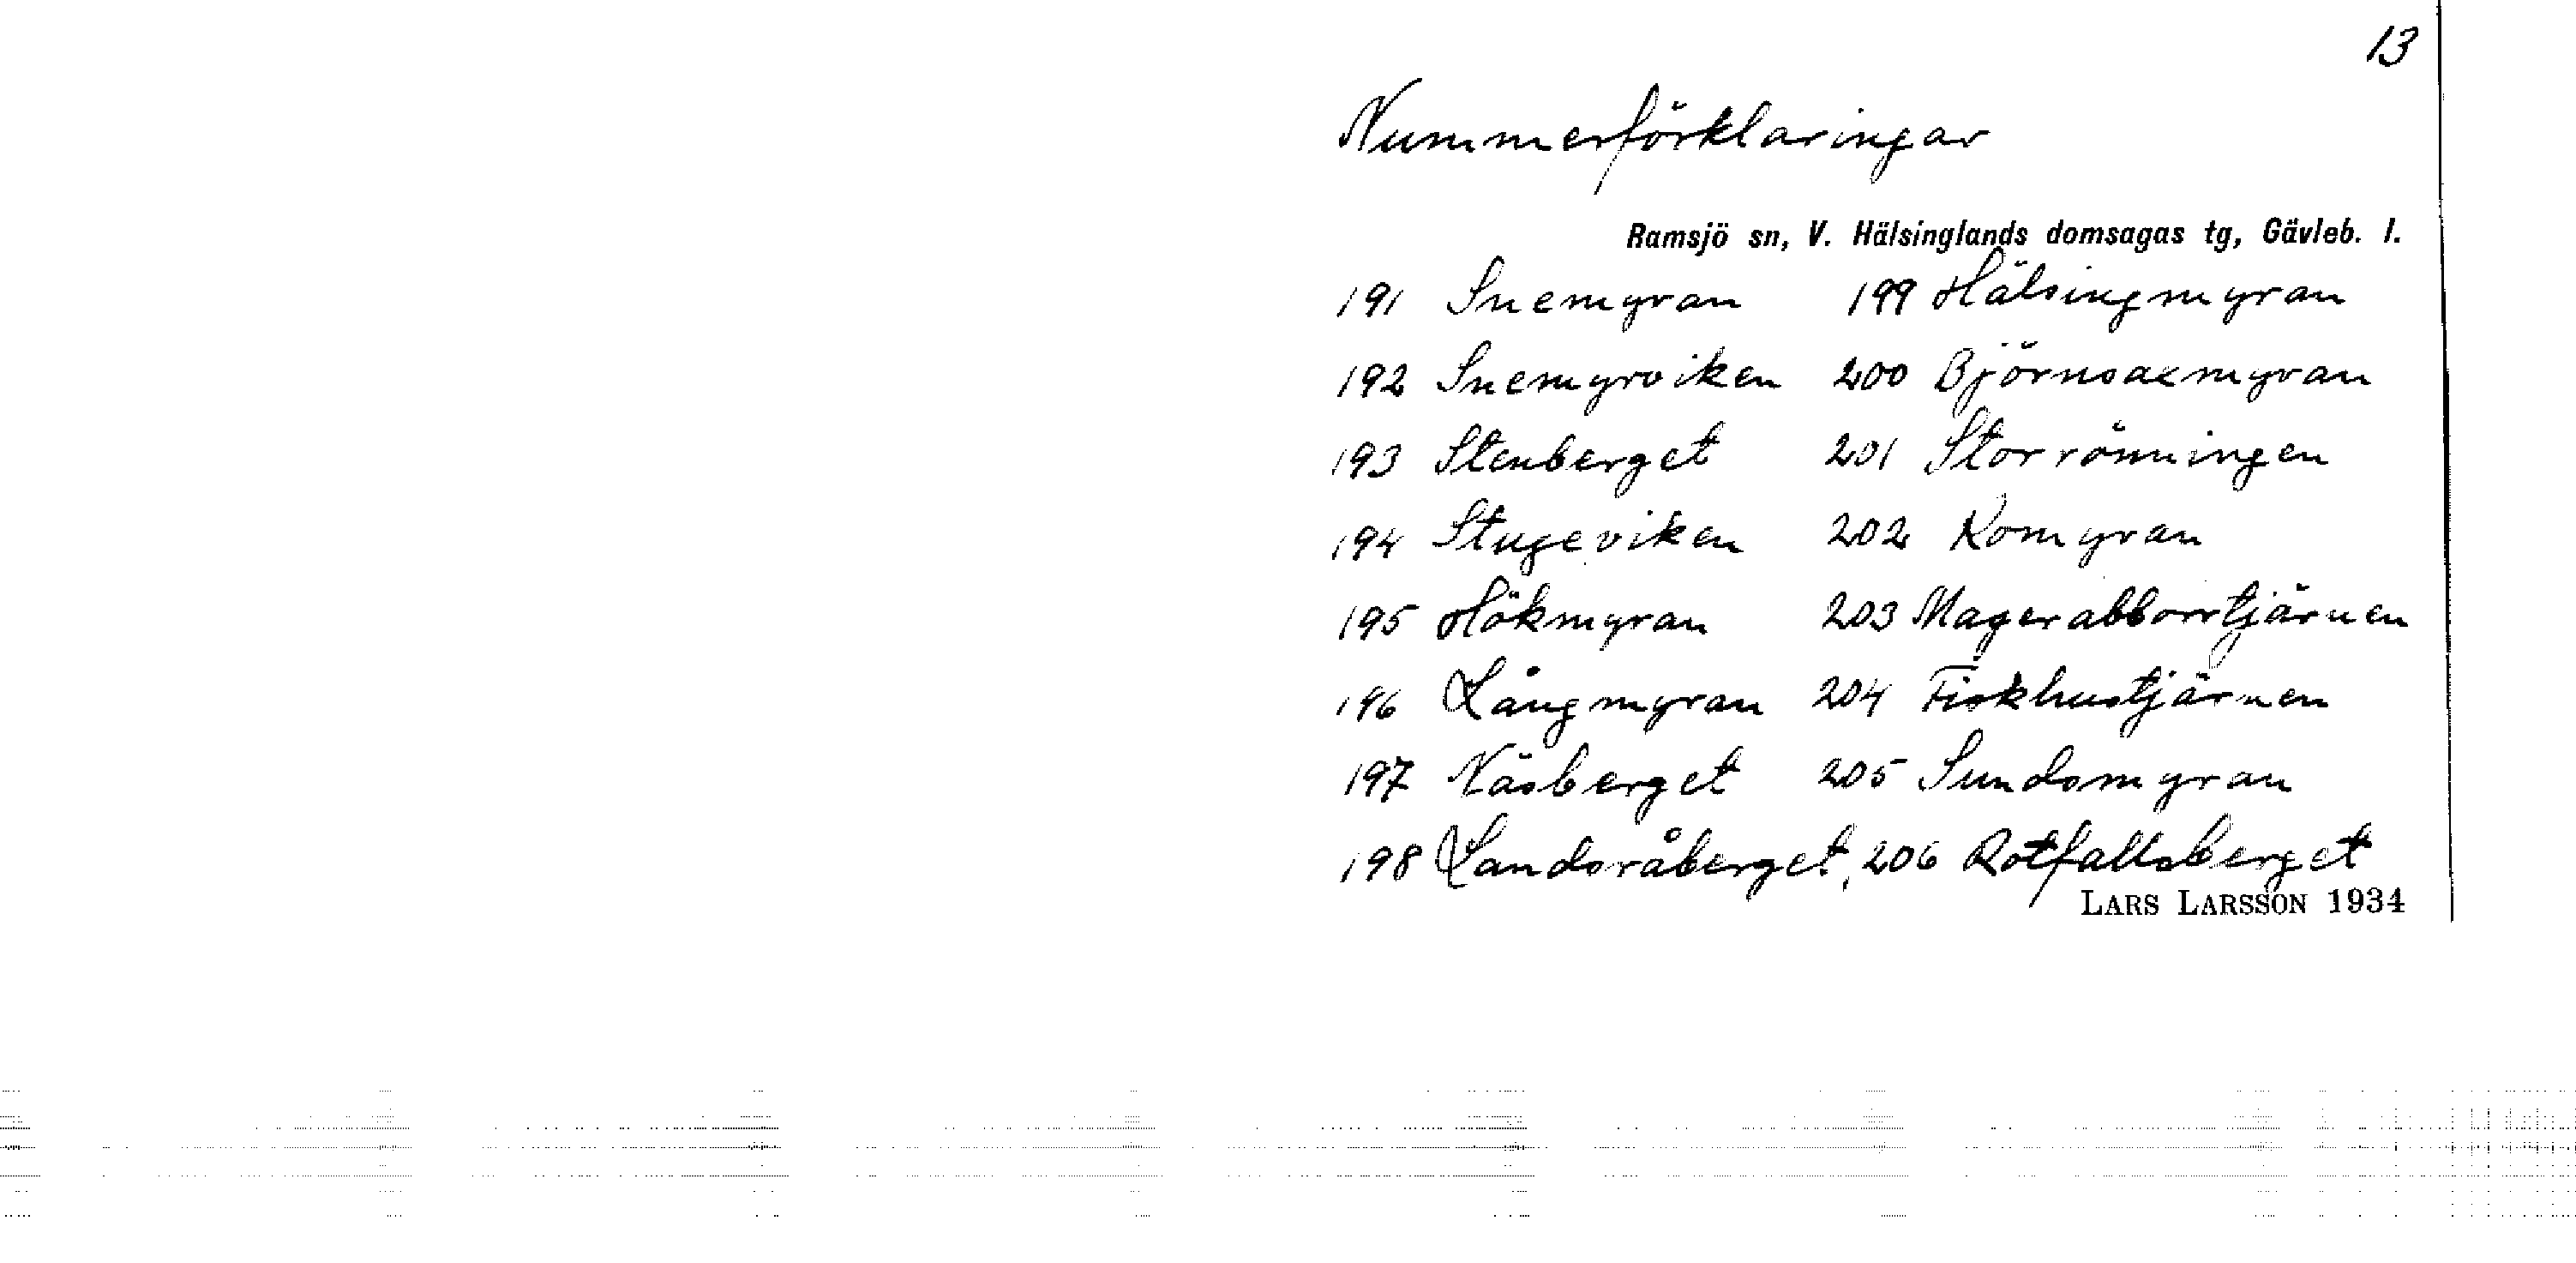 13
Nummerförklaringar
Ramsjö sn, V. Hälsinglands domsagas tg, Gävleb. l.
191 Snemyran 199 Hälsingmyran
192 Snemyrviken 200 Björnsaxmyran
193 Stenberget 201 Storrönningen
194 Stugeviken 202 Komyran
195 Hökmyran 203 Magerabborrtjärnen
196 Långmyran 204 Fiskhustjärnen
197 Näsberget 205 Sundsmyran
198 Landsråberget, 206 Rotfallsberget
LARS LARSSON 1934